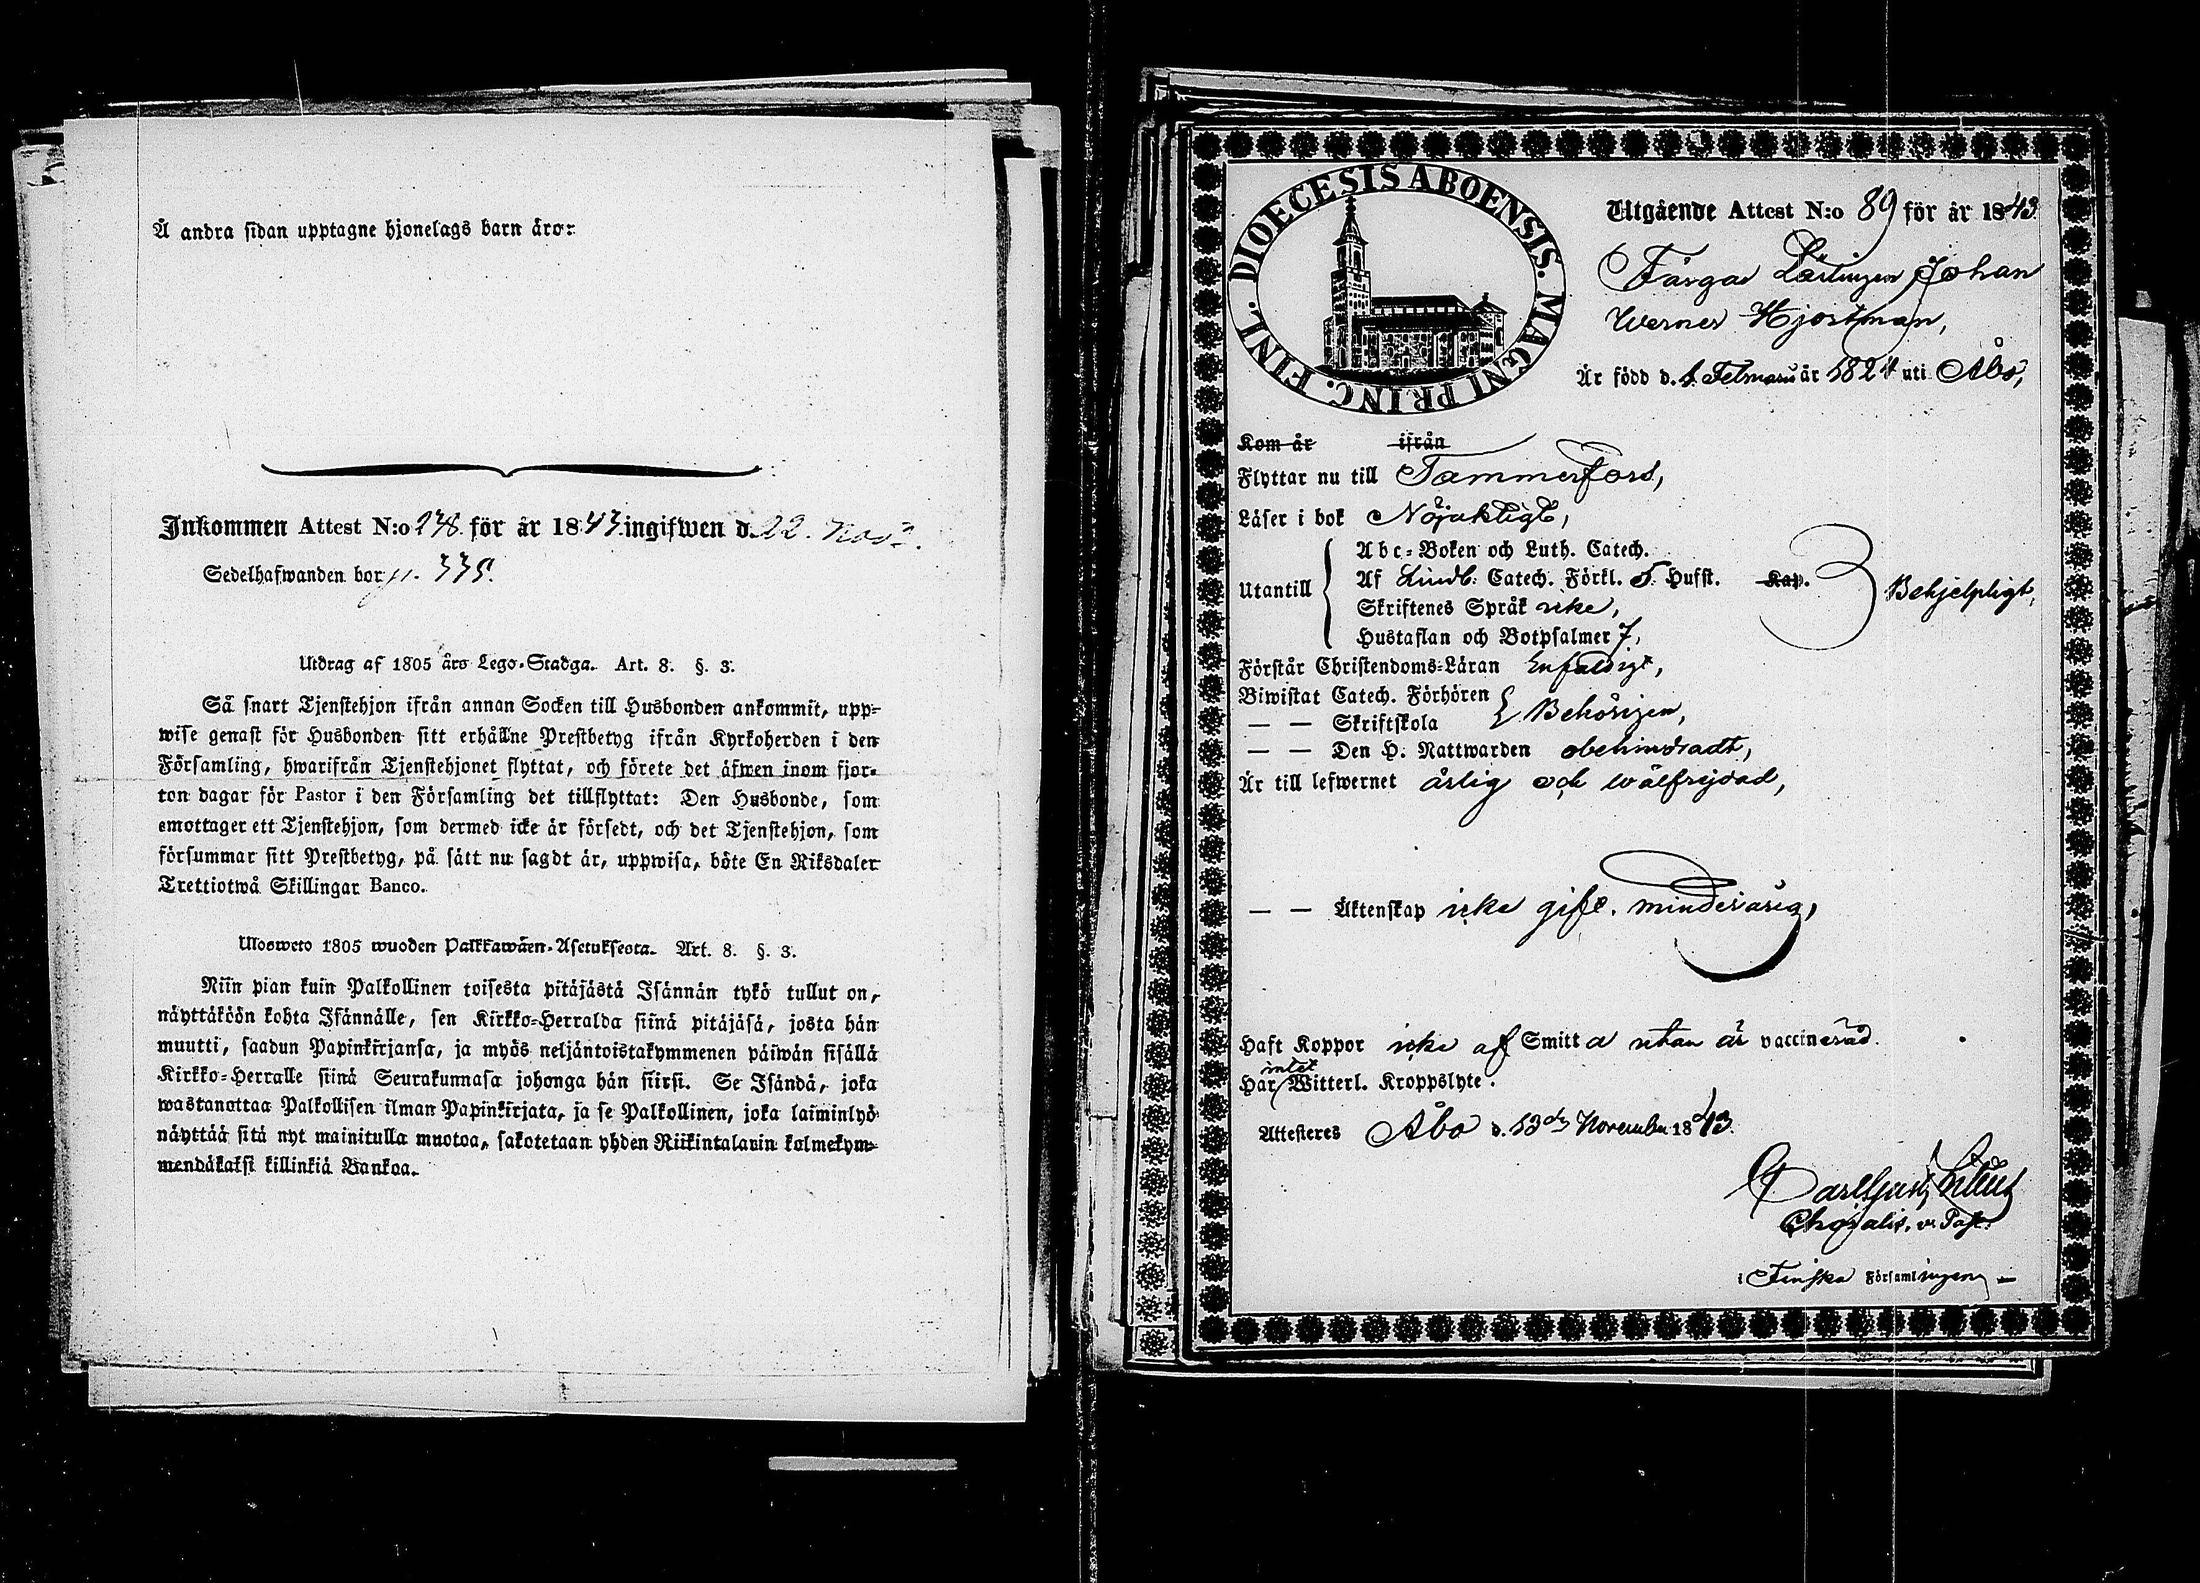 Å andra sidan upptagne hjonelags barn äro:
Inkommen Attest N:o 238 för år 1843 ingifwen d. 22. Nov.
Sedelhafwanden bor p. 335.
Utdrag af 1805 års Lego-Stadga. Art. 8. §. 3.
Så snart Tjenstehjon ifrån annan Socken till Husbonden ankommit, upp-
wise genast för Husbonden sitt erhållne Prestbetyg ifrån Kyrkoherden i den
Församling, hwarifrån Tjenstehjonet flyttat, och förete det äfwen inom fjor-
ton dagar för Pastor i den Församling det tillflyttat: Den Husbonde, som
emottager ett Tjenstehjon, som dermed icke är försedt, och det Tjenstehjon, som
försummar sitt Prestbetyg, på sätt nu sagdt är, uppwisa, böte En Riksdaler
Trettiotwå Skillingar Banco.
Ulosweto 1805 wuoden Palkkawäen-Asetuksesta. Art. 8. §. 3.
Niin pian kuin Palkollinen toisesta pitäjästä Isännän tykö tullut on,
näyttäköön kohta Isännälle, sen Kirkko-Herralda siinä pitäjäsä, josta hän
muutti, saadun Papinkirjansa, ja myös neljäntoistakymmenen päiwän sisällä
Kirkko-Herralle siinä Seurakunnasa johonga hän siirsi. Se Isändä, joka
wastanottaa Palkollisen ilman Papinkirjata, ja se Palkollinen, joka laiminlyö
näyttää sitä nyt mainitulla muotoa, sakotetaan yhden Riikintalarin kolmekym-
mendäkaksi killinkiä Bankoa.
DIOECESIS ABOENSIS. MAGNI PRINC. FINL.
Utgående Attest N:o 89 för år 1843
Färgar Lärlingen Johan
Werner Hjortman,
Är född d. 1. Februarii år 1824 uti Åbo,
Kom år ifrån
Flyttar nu till Tammerfors,
Läser i bok Nöjaktigt,
Utantill
Abc-Boken och Luth. Catech.
Af Lindb: Catech. Förkl. 5. Hufst. Kap.
Skriftenes Språk icke,
Hustaflan och Botpsalmer 7,
Behjelpligt,
Förstår Christendoms-Läran Enfaldigt,
Biwistat Catech. Förhören
— — Skriftskola Behörigen,
— — Den H. Nattwarden obehindradt,
Är till lefwernet ärlig och wälfrejdad,
— — Äktenskap icke gift. minderårig,
Haft Koppor icke af Smitta utan är vaccinerad.
Har intet Witterl. Kroppslyte.
Attesteres Åbo d. 13de November 1843.
Carl Gust
v. Past.
i Finska Församlingen